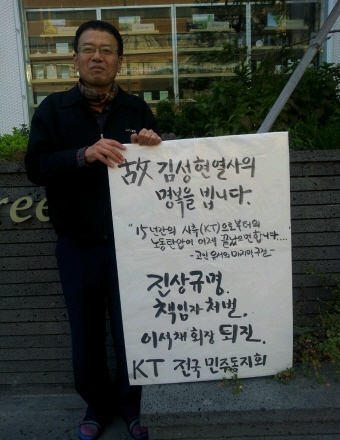 故 김성현열사의
명복을 빕니다.
"15년간의 사측(KT)으로부터의
노동탄압이 이제 끝났으면합니다....
-고인 유서의 마지막 구절-
진상규명.
책임자 처벌.
이석채 회장 퇴진.
KT 전국 민주동지회
ree